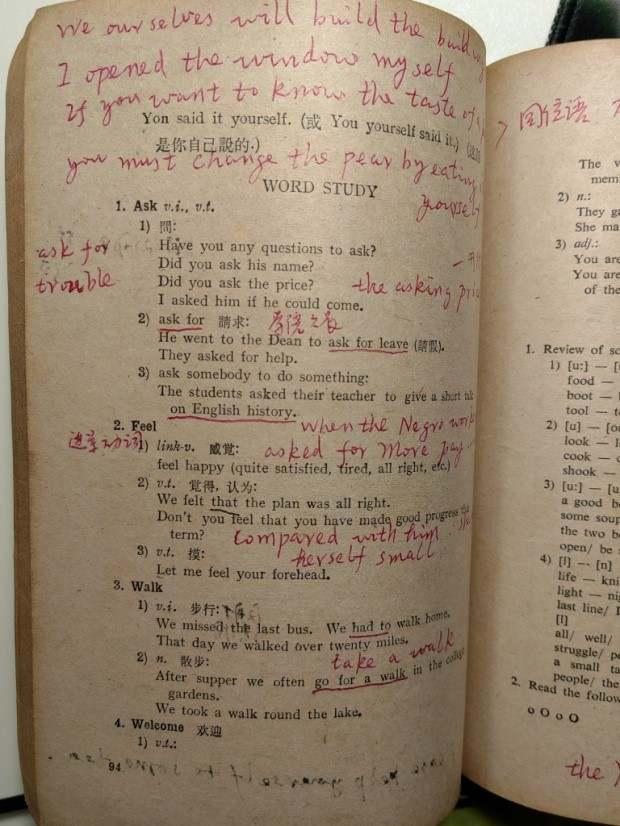 We ourselves will build the
I opened the window myself
If you want to know the taste of a
Yon said it yourself. (或 You yourself said it.)
是你自己説的.)
you must change the pear by eating
yourself
WORD STUDY
1. Ask v.i., v.t.
1) 問:
Have you any questions to ask?
ask for
trouble
Did you ask his name?
Did you ask the price?
the asking
I asked him if he could come.
2) ask for 請求:
He went to the Dean to ask for leave (請假).
They asked for help.
3) ask somebody to do something:
The students asked their teacher to give a short talk
on English history.
when the Negro
2. Feel
1) link-v. 感覚:
asked for more pay
feel happy (quite satisfied, tired, all right, etc.)
2) v.t. 覚得, 认为:
We felt that the plan was all right.
Don't you feel that you have made good progress this
term?
compared with him
herself small
3) v.t. 摸:
Let me feel your forehead.
3. Walk
1) v.i. 步行:
We missed the last bus. We had to walk home.
That day we walked over twenty miles.
2) n. 散步:
take a walk
After supper we often go for a walk in the college
gardens.
We took a walk round the lake.
4. Welcome 欢迎
1) v.t.:
94
The v
mem
2) n.:
They ga
She ma
3) adj.:
You are
You are
of the
1. Review of so
1) [u:] — [
food —
boot —
tool —
2) [u] — [
look —
cook —
shook —
3) [u:] — [u
a good b
some soup
the two b
open/ be s
4) [l] — [n]
life — kni
light — nig
last line/ I
[l]
all/ well/
struggle/ pe
a small ta
people/ the
2. Read the follow
o O o O
the